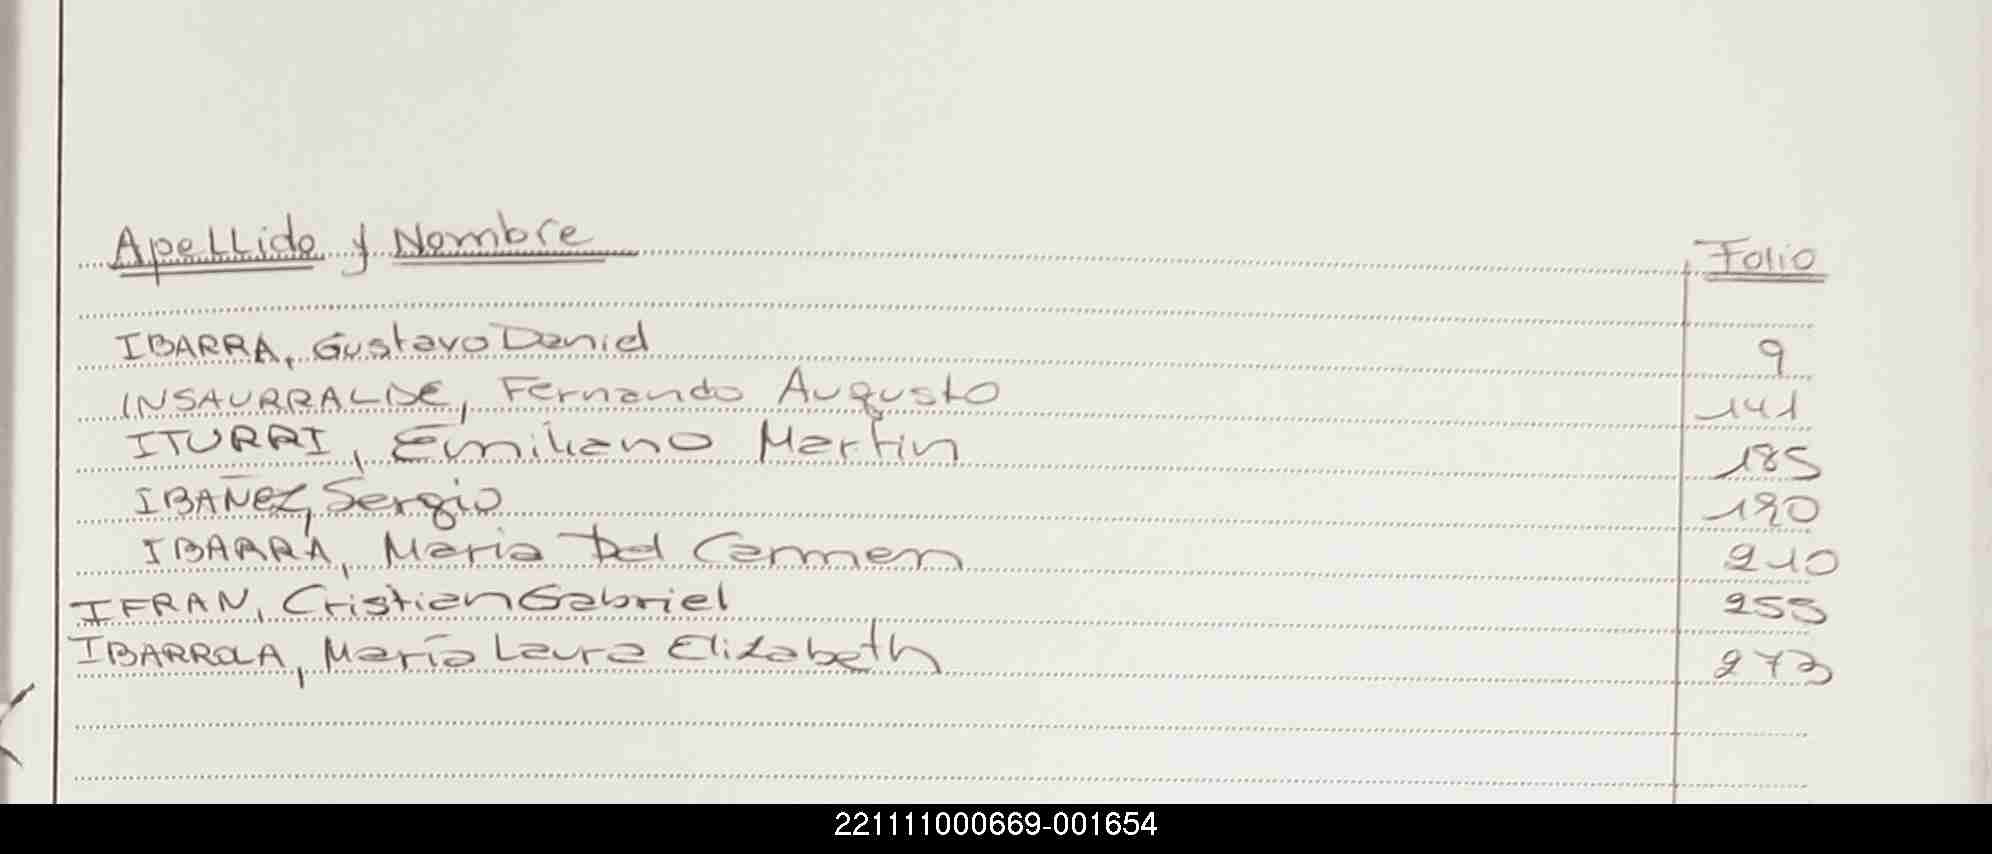 Apellido y Nombre Folio
IBARRA, Gustavo Daniel 9
INSAURRALDE, Fernando Augusto 141
ITURRI, Emiliano Martin 185
IBAÑEZ, Sergio 190
IBARRA, Maria Del Carmen 210
IFRAN, Cristian Gabriel 255
IBARROLA, María Laura Elizabeth 273
221111000669-001654